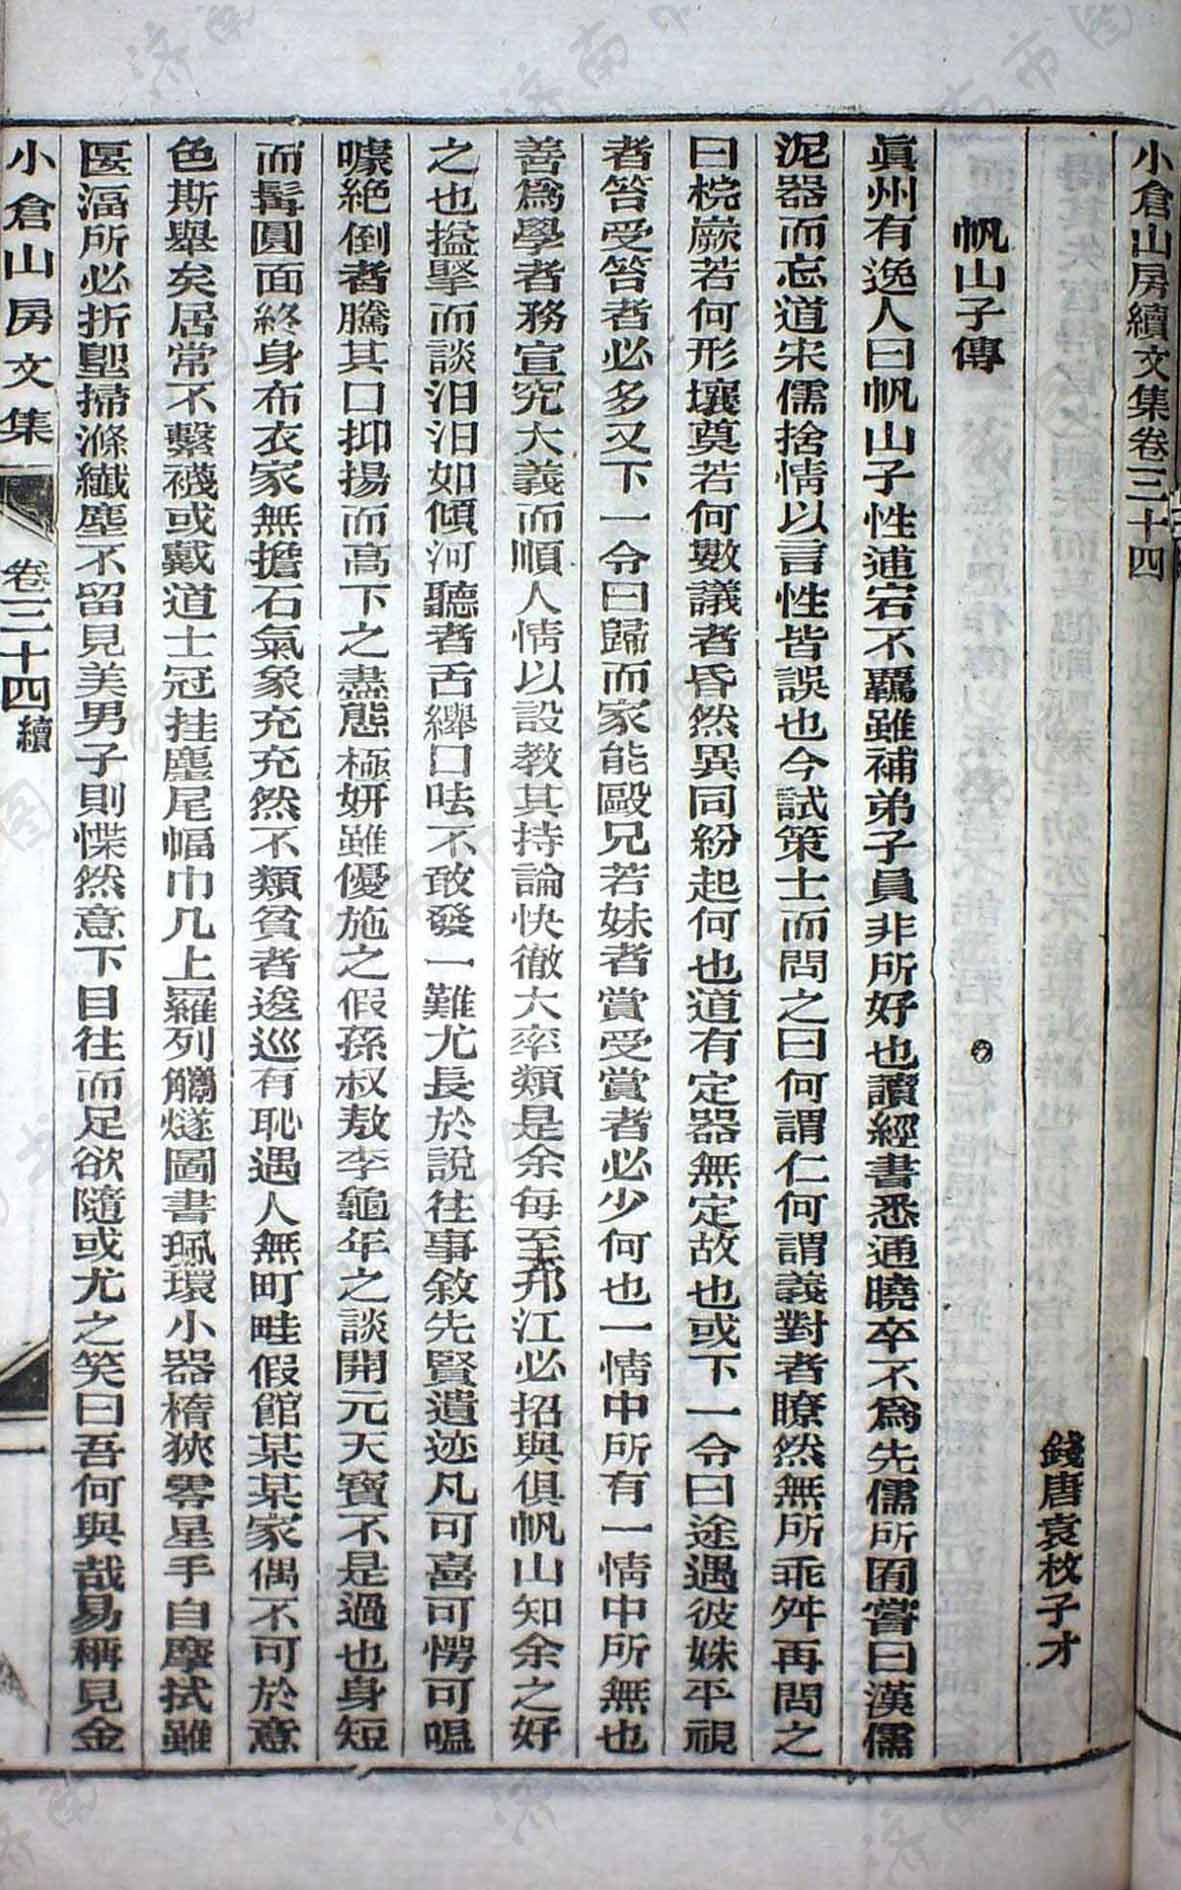 小倉山房續文集卷三十四
錢唐袁枚子才
帆山子傳
眞州有逸人曰帆山子性逋宕不羈雖補弟子員非所好也讀經書悉通曉卒不爲先儒所囿嘗曰漢儒
泥器而忘道宋儒捨情以言性皆誤也今試策士而問之曰何謂仁何謂義對者瞭然無所乖舛再問之
曰梡嶡若何形壤奠若何數議者昏然異同紛起何也道有定器無定故也或下一令曰途遇彼姝平視
者笞受笞者必多又下一令曰歸而家能毆兄若妹者賞受賞者必少何也一情中所有一情中所無也
善爲學者務宣究大義而順人情以設教其持論快徹大率類是余每至邗江必招與俱帆山知余之好
之也搤掔而談汨汨如傾河聽者舌縪口呿不敢發一難尤長於說往事敘先賢遺迹凡可喜可愕可嗢
噱絕倒者騰其口抑揚而高下之盡態極妍雖優施之假孫叔敖李龜年之談開元天寶不是過也身短
而髯圓面終身布衣家無擔石氣象充充然不類貧者逡巡有恥遇人無町畦假館某某家偶不可於意
色斯舉矣居常不繫襪或戴道士冠挂麈尾幅巾几上羅列觿燧圖書珮環小器橢狹零星手自摩拭雖
匽湢所必折塱掃滌纖塵不留見美男子則惵然意下目往而足欲隨或尤之笑曰吾何與哉易稱見金
小倉山房文集 卷三十四續 一